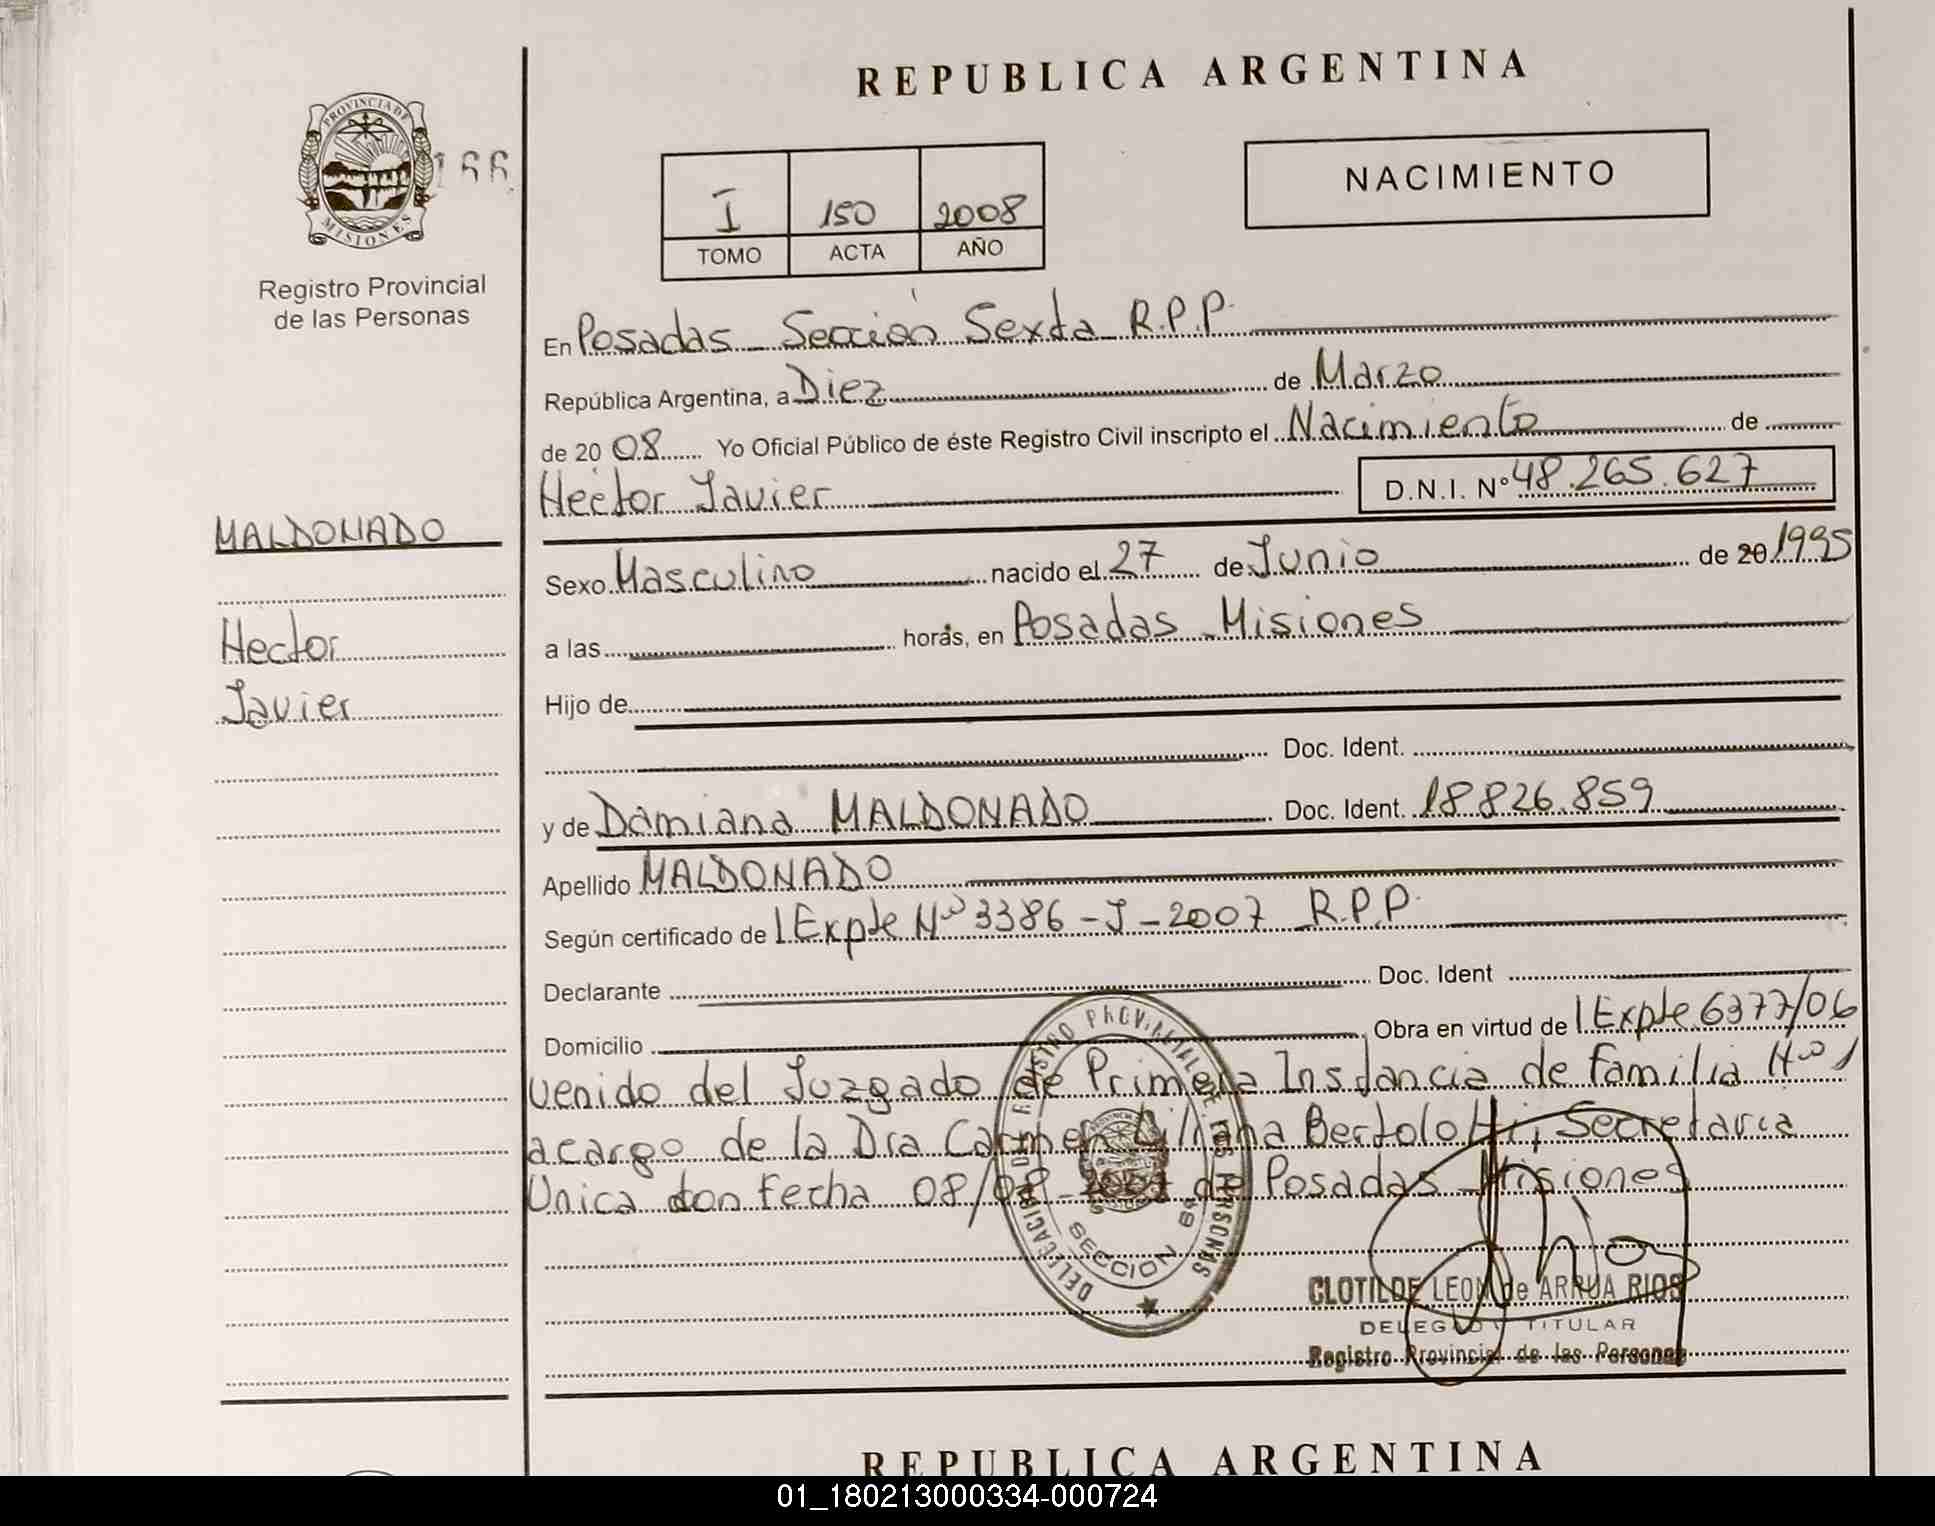 REPUBLICA ARGENTINA
PROVINCIA DE
MISIONES
166
Registro Provincial
de las Personas
NACIMIENTO
I 150 2008
TOMO ACTA AÑO
En Posadas - Sección Sexta R.P.P.
República Argentina, a Diez de Marzo
de 2008 Yo Oficial Público de éste Registro Civil inscripto el Nacimiento de
Hector Javier D.N.I. Nº 48.265.627
MALDONADO
Hector
Javier
Sexo Masculino nacido el 27 de Junio de 20 1995
a las horas, en Posadas - Misiones
Hijo de
Doc. Ident.
y de Damiana MALDONADO Doc. Ident. 18826.859
Apellido MALDONADO
Según certificado de Expte Nº 3386-J-2007 R.P.P.
Declarante Doc. Ident
Domicilio Obra en virtud de Expte 6377/06
venido del Juzgado de Primera Instancia de familia Nº 1
acargo de la Dra Carmen Liliana Bertolotti, Secretaria
Unica con Fecha 08/08 de Posadas - Misiones
DELEGACION REGISTRO PROVINCIAL DE LAS PERSONAS
SECCION 6ª
CLOTILDE LEON de ARRUA RIOS
DELEGADO TITULAR
Registro Provincial de las Personas
REPUBLICA ARGENTINA
01_180213000334-000724